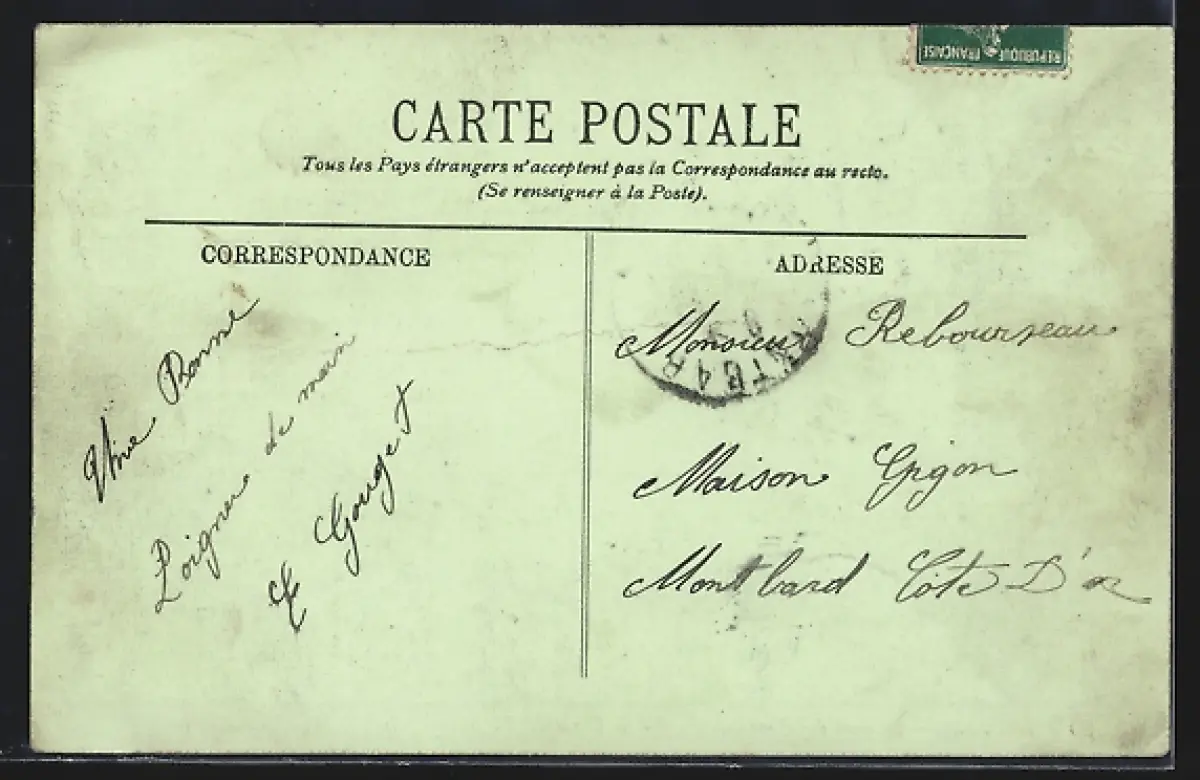 REPUBLIQUE FRANÇAISE
CARTE POSTALE
Tous les Pays étrangers n'acceptent pas la Correspondance au recto.
(Se renseigner à la Poste).
CORRESPONDANCE
Une Bonne
Poignee de main
E Gouget
ADRESSE
Monsieur Rebourseau
Maison Gigon
Montbard Côte D'or